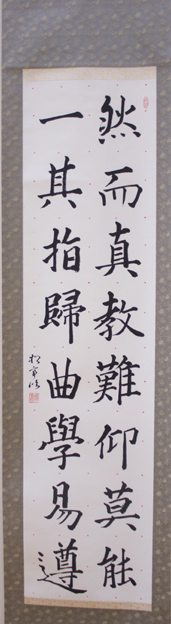 然而真教難仰莫能
一其指歸曲學易遵